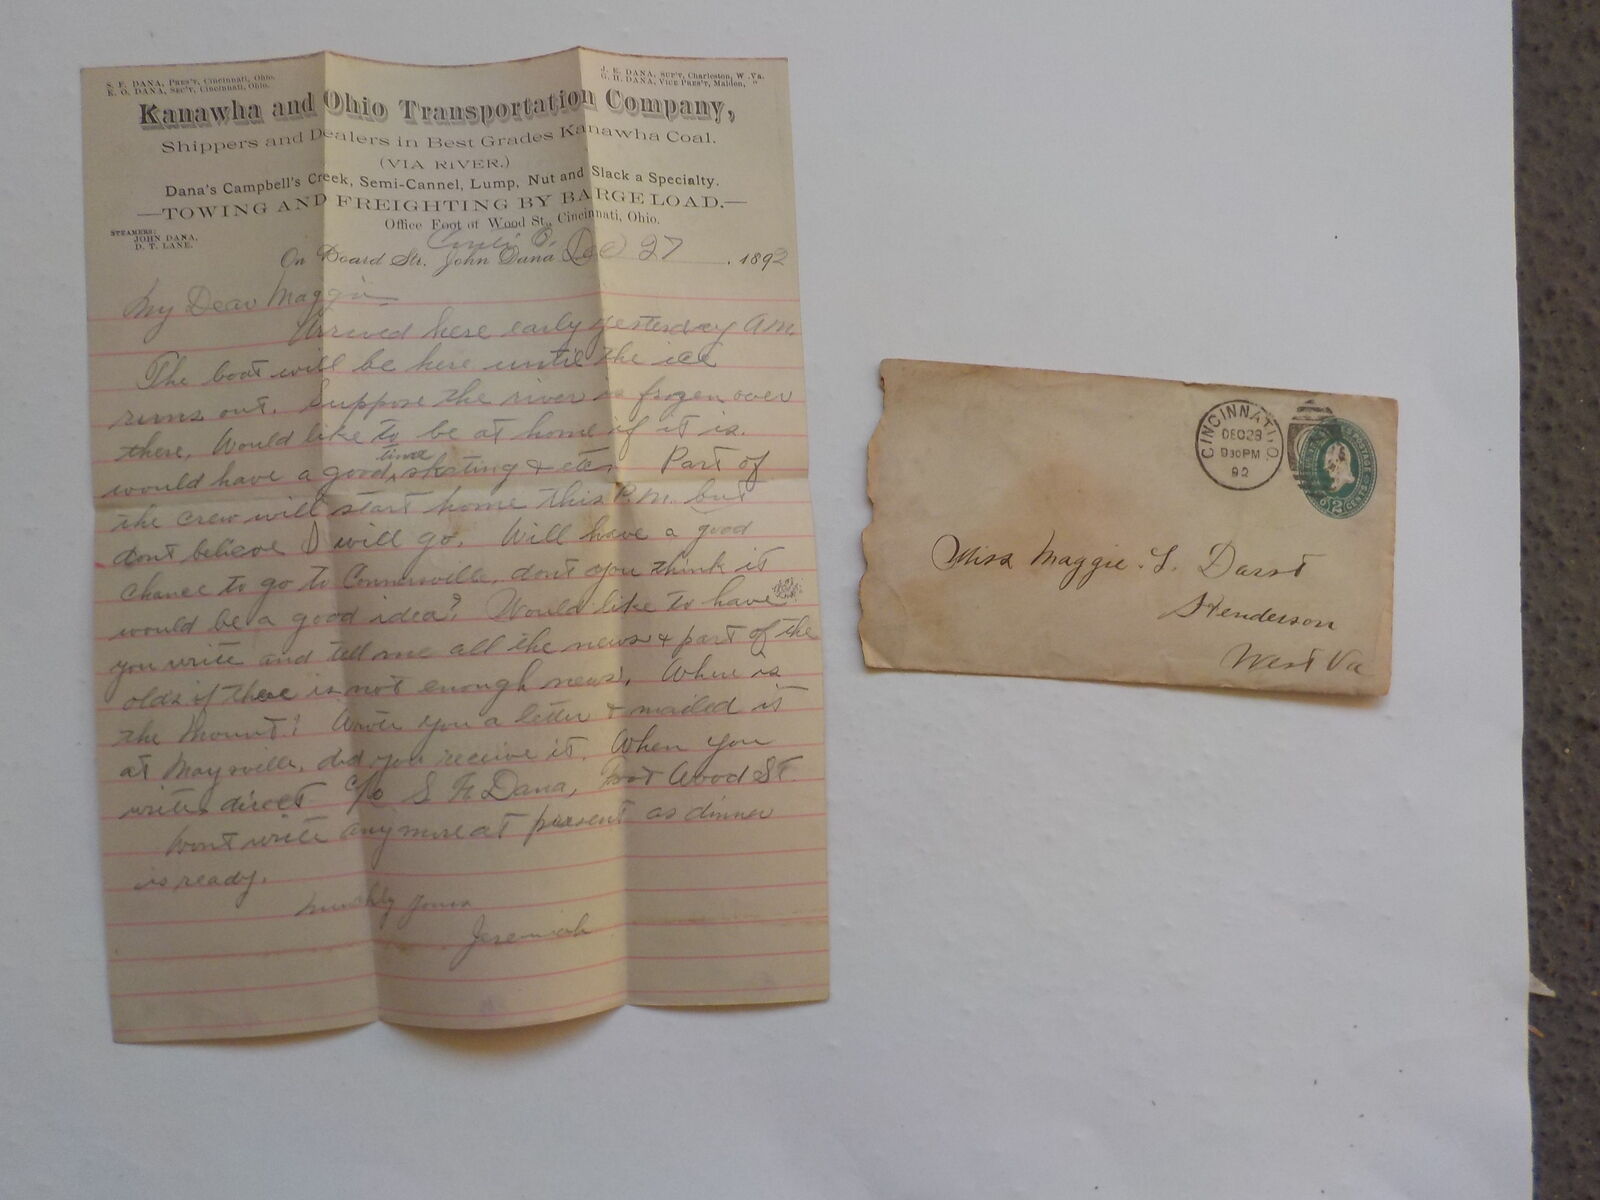 S. F. DANA, PRES'T, Cincinnati, Ohio.
E. O. DANA, SEC'T, Cincinnati, Ohio.
J. E. DANA, SUP'T, Charleston, W. Va.
G. H. DANA, VICE PRES'T, Malden, "
Kanawha and Ohio Transportation Company,
Shippers and Dealers in Best Grades Kanawha Coal.
(VIA RIVER.)
Dana's Campbell's Creek, Semi-Cannel, Lump, Nut and Slack a Specialty.
—TOWING AND FREIGHTING BY BARGE LOAD.—
Office Foot of Wood St., Cincinnati, Ohio.
STEAMERS:
JOHN DANA,
D. T. LANE.
Cinti O.
On Board Str. John Dana Dec 27 1892
My Dear Maggie
Arrived here early yesterday A.M.
The boat will be here until the ice
runs out. Suppose the river is frozen over
there. Would like to be at home if it is.
would have a good time skating & etc. Part of
the crew will start home this P.M. but
dont believe I will go. Will have a good
chance to go to Connersville, dont you think it
would be a good idea? Would like to have
you write and tell me all the news & part of the
olds if there is not enough news. Where is
the Mount? Wrote you a letter & mailed it
at Maysville, did you receive it. When you
write direct c/o S F Dana, Foot Wood St.
Wont write any more at present as dinner
is ready.
yours
Jeremiah
CINCINNATI, O.
DEC 28
930 PM
92
U.S. POSTAGE
2 CENTS 2
Miss Maggie. L. Darst
Henderson
West Va